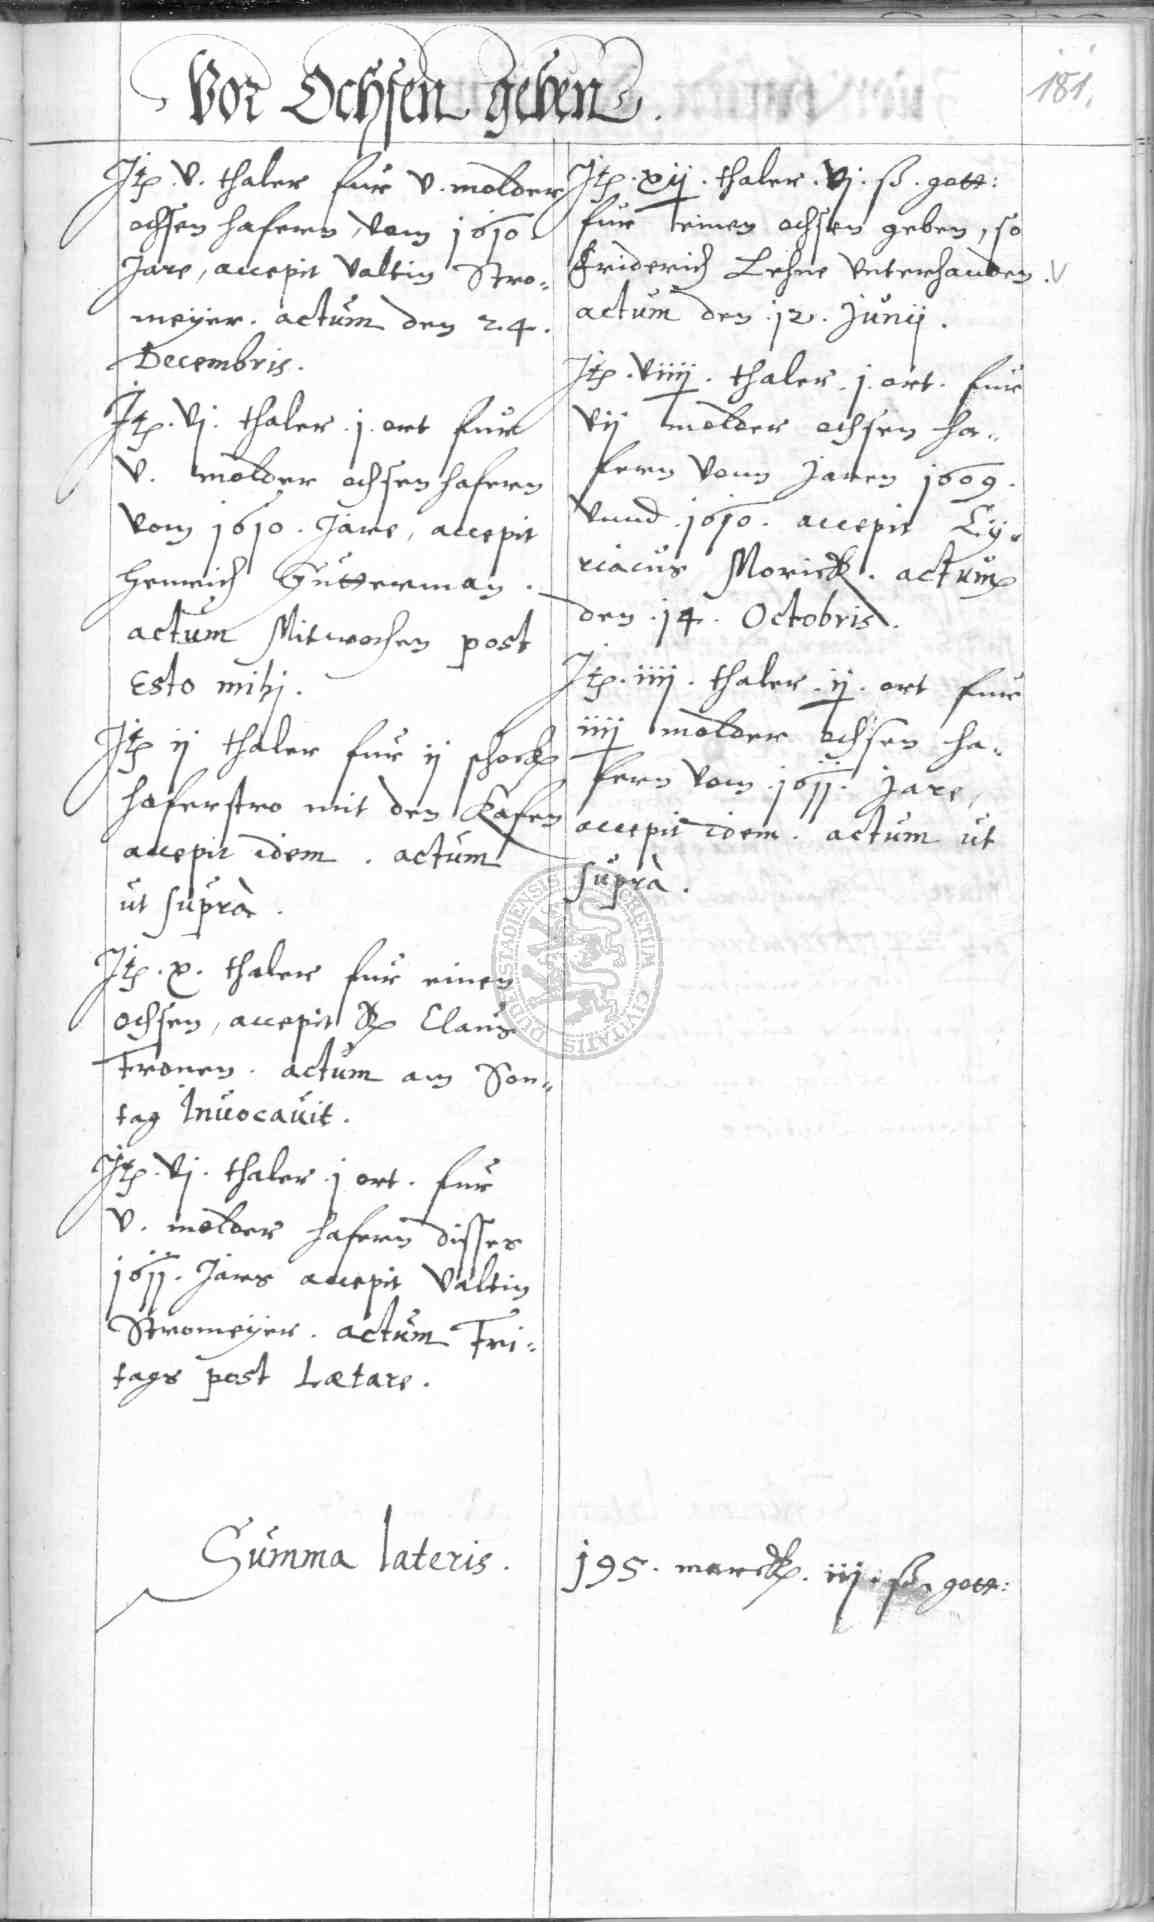 181.
Vor Ochsen geben.
Itp. v. thaler fur v. molder
ochsen hafern, vom 1610
Jare, accepit Valtin Stro-
meÿer. actum den 24.
Decembris.
Itp. vj. thaler j. ort fur
v. molder ochsenhafern
vom 1610. Jare, accepit
Henrich Gutterman.
actum Mitwochen post
Esto mihj.
Itp ij thaler fur ij schock
haferstro mit den Kafen
accepit idem. actum
ut suprà.
Itp. x. thaler fur einen
ochsen, accepit Claus
Fronen. actum am Son-
tag Inuocauit.
Itp. vj. thaler j ort. fur
v. molder hafern disses
1611. Jars accepit Valtin
Stromeÿer. actum Fri-
tags post Lætare.
Itp. xij. thaler. vj. ß. gott:
fur einen ochsen geben, so
Friderich Lehne vnterhanden.
actum den 12. Junij.
Itp. viiij. thaler. j. ort. fur
vij molder ochsen ha-
fern vonn Jaren 1609.
vnnd 1610. accepit Cÿ-
riacus Morick. actum
den 14. Octobris.
Itp. iiij. thaler. ij. ort fur
iiij molder ochsen ha-
fern vom 1611. Jare,
accepit idem. actum ut
suprà.
SECRETUM CIVITATIS DUDERSTADIENSIS
Summa lateris. 195. marck. iij. ß. gott: